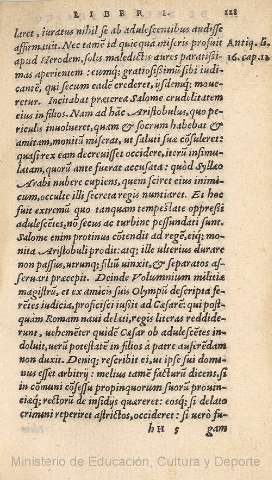 LIBER I. 118
laret, iuratus nihil se ab adulescentibus audisse
affirmauit. Nec tamē id quicquā miseris profuit
Antiq. li.
16. cap. 12
apud Herodem, solis maledictis aures paratissi-
mas aperientem: eumq́; gratiosissimū sibi iudi-
cantē, qui secum eadē crederet, ijsdemq́; moue-
retur. Incitabat prætereà Salome crudelitatem
eius in filios. Nam ad hāc Aristobulus, quo pe-
riculis inuolueret, quam & socrum habebat &
amitam, monitū miserat, vt saluti suæ cōsuleret:
quasi rex eam decreuisset occidere, iterū insimu-
latam, quorū ante fuerat accusata: quòd Syllæo
Arabi nubere cupiens, quem sciret eius inimi-
cum, occulte illi secreta regis nuntiaret. Et hæc
fuit extremū quo tanquam tempestate oppressi
adulescētes, nō secus ac turbine pessundati sunt.
Salome enim protinus cōtendit ad regē, eiq́; mo-
nita Aristobuli prodit: atq; ille vlterius durare
non passus, vtrunq; filiū vinxit, & separatos as-
seruari præcepit. Deinde Volumnium militiæ
magistrū, et ex amicis suis Olympū descripta fe-
rētes iudicia, proficisci iussit ad Cæsarē: qui post-
quam Romam naui delati, regis literas reddide-
runt, vehemēter quidē Cæsar ob adulescētes in-
doluit, verū potestatē in filios à patre auferēdam
non duxit. Deniq; rescribit ei, vt ipse sui domi-
nus esset arbitrij: melius tamē facturū dicens, si
in cōmuni cōsessu propinquorum suorū prouin-
ciæq́; rectorū de insidijs quæreret: eosq́; si delato
crimini reperiret astrictos, occideret: si verò fu-
hH 5 gam
Ministerio de Educación, Cultura y Deporte